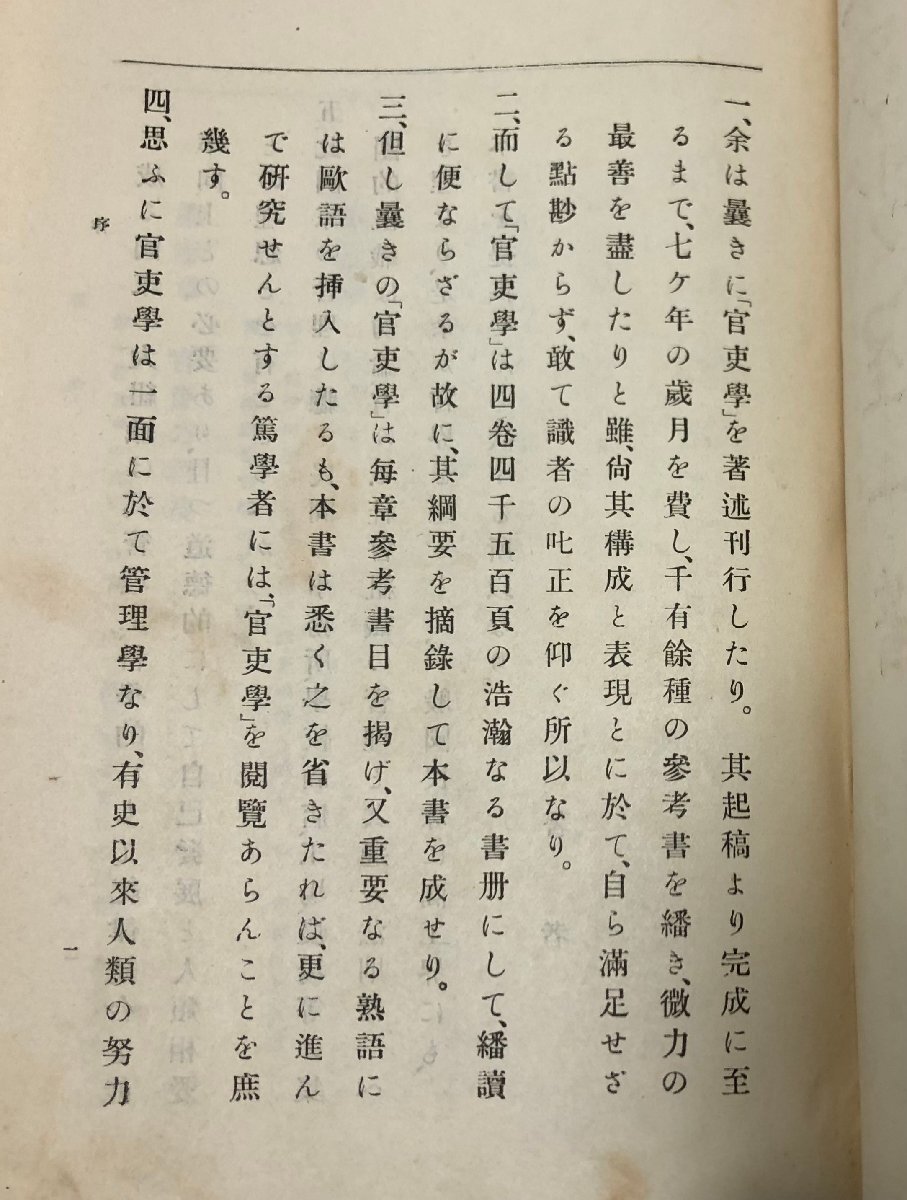 一、余は曩きに「官吏學」を著述刊行したり。其起稿より完成に至
るまで、七ケ年の歲月を費し、千有餘種の參考書を繙き、微力の
最善を盡したりと雖、尙其構成と表現とに於て、自ら滿足せざ
る點尠からず、敢て識者の叱正を仰ぐ所以なり。
二、而して「官吏學」は四卷四千五百頁の浩瀚なる書册にして、繙讀
に便ならざるが故に、其綱要を摘錄して本書を成せり。
三、但し曩きの「官吏學」は每章參考書目を揭げ、又重要なる熟語に
は歐語を挿入したるも、本書は悉く之を省きたれば、更に進ん
で硏究せんとする篤學者には、「官吏學」を閱覽あらんことを庶
幾す。
四、思ふに官吏學は一面に於て管理學なり、有史以來人類の努力
序
一